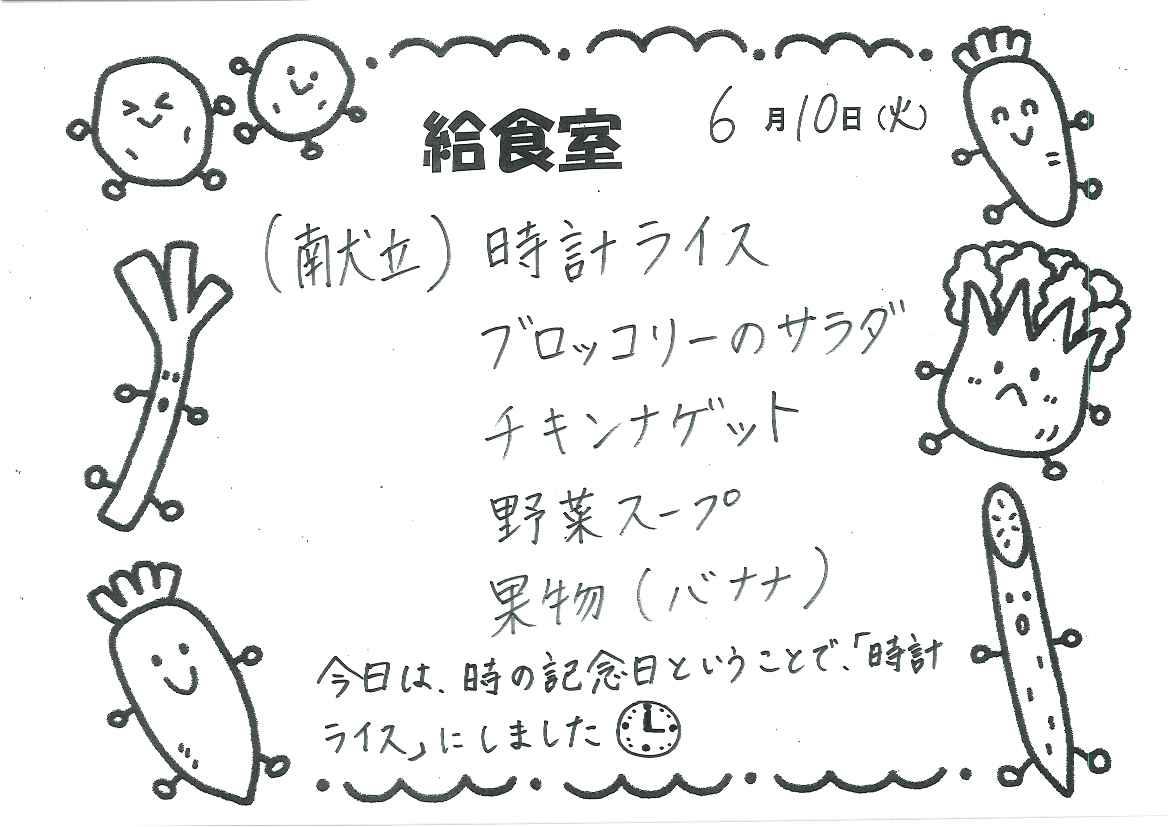 給食室
6月10日(火)
(献立) 時計ライス
ブロッコリーのサラダ
チキンナゲット
野菜スープ
果物(バナナ)
今日は、時の記念日ということで、「時計
ライス」にしました